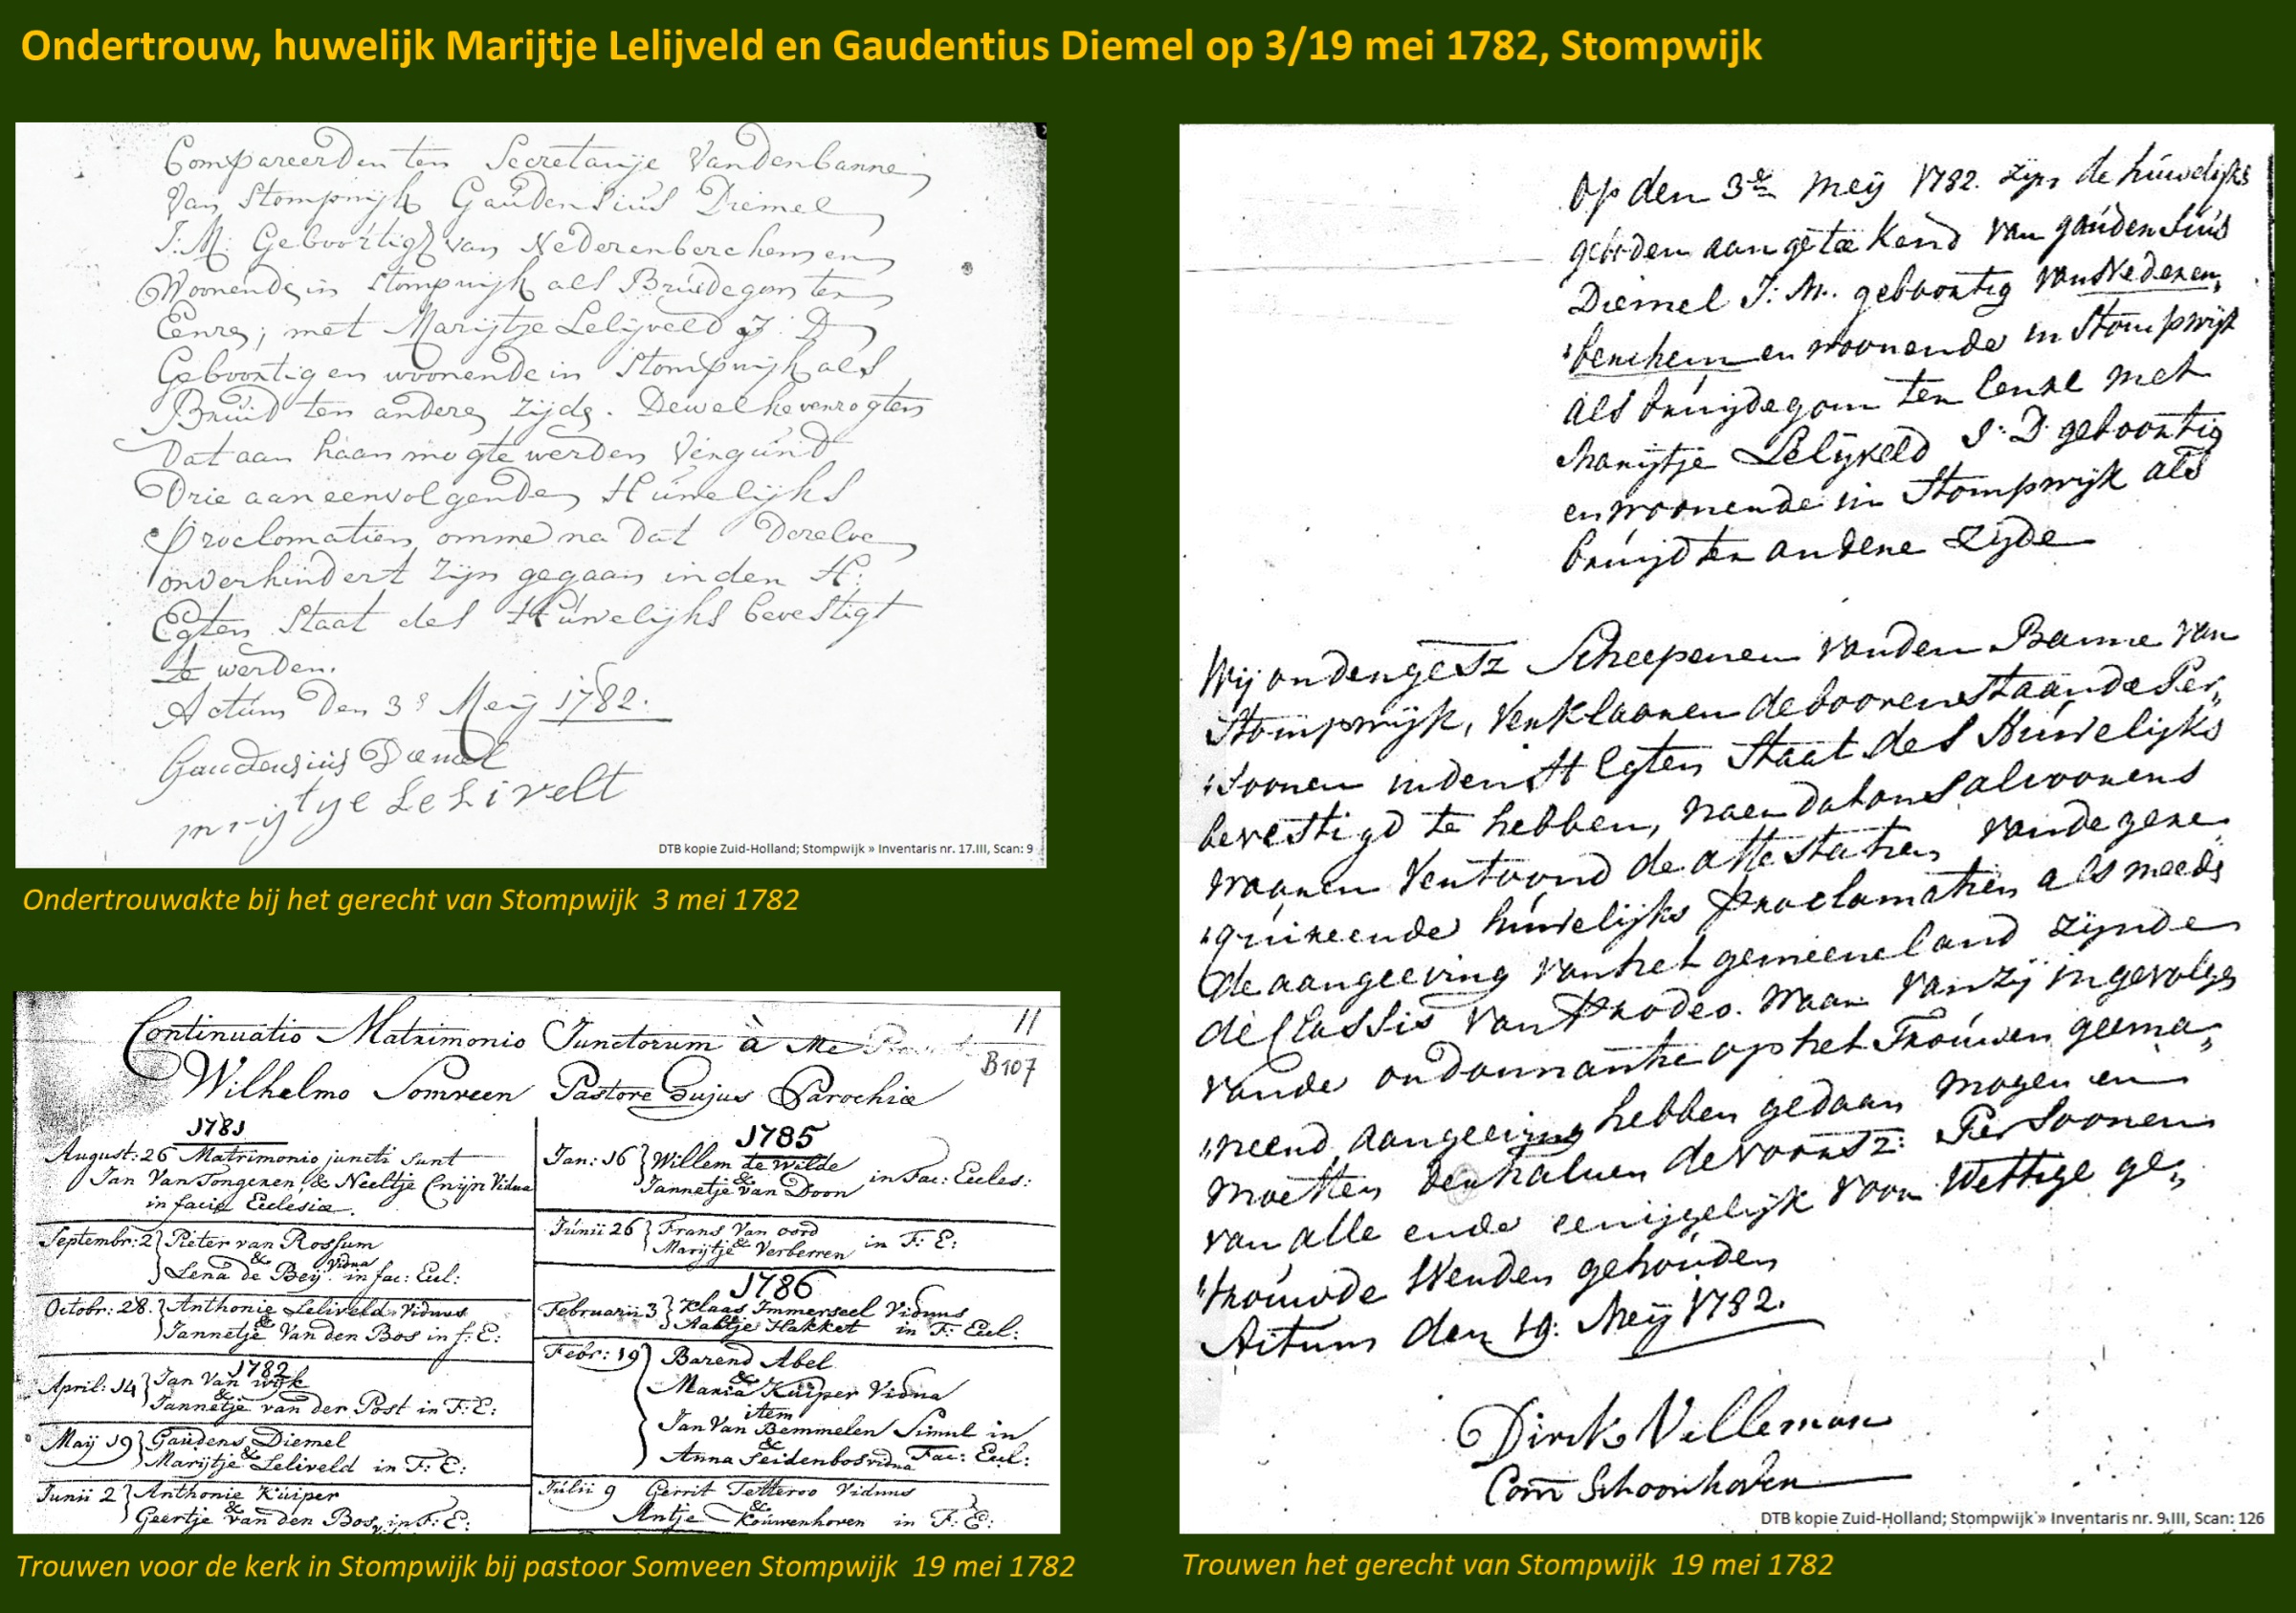 Ondertrouw, huwelijk Marijtje Lelijveld en Gaudentius Diemel op 3/19 mei 1782, Stompwijk
Compareerden ten Secretarije Vandenbanne
Van Stompwijk Gaudensius Diemel
J:M: Geboortig van Nederenberchem en
Woonende in Stompwijk als Bruidegom ten
Eenre; met Marijtje Lelijveld J: D
Geboortig en woonende in Stompwijk als
Bruid ten andere zijde. Dewelke versogten
Dat aan haar mogte werden Vergund
Drie aaneenvolgende Huwelijks
Proclomatien omme na dat Dezelve
onverhindert zijn gegaan in den H:
Egten Staat des Huwelijks bevestigt
te werden.
Actum Den 3e Meij 1782.
Gaudensius Diemel
mrijtye LeLivelt
DTB kopie Zuid-Holland; Stompwijk » Inventaris nr. 17.III, Scan: 9
Ondertrouwakte bij het gerecht van Stompwijk 3 mei 1782
Continuatio Matrimonio Junctorum à Me
11
B107
Wilhelmo Somveen Pastore Hujus Parochiæ
1781
August: 26 Matrimonio juncti sunt
Jan Van Tongeren, & Neeltje Cnijn Vidua
in facie Eclesiæ.
Septembr: 2 Pieter van Rossum
&
Lena de Beij Vidua in fac: Ecl:
Octobr: 28. Anthonie Leliveld Viduus
&
Jannetje Van den Bos in f: E:
1782
April: 14 Jan Van wijk
&
Jannetje van der Post in F: E:
Maij 19 Gaudens Diemel
&
Marijtje Leliveld in F: E:
Junii 2 Anthonie Kuiper
&
Geertje van den Bos, in F: E:
1785
Jan: 16 Willem de Wilde
&
Jannetje van Doorn in Fac: Eccles:
Junii 26 Frans Van oord
&
Marijtje Verberren in F: E:
1786
Februarii 3 Klaas Immerseel Viduus
&
Aaltje Hakket in F: Ecl:
Febr: 19 Barend Abel
&
Maria Kuiper Vidua
item
Jan Van Bemmelen Simul in
&
Anna Seidenbos vidua Fac: Ecl:
Julii 9 Gerrit Tetteroo Viduus
&
Antje Kouwenhoven in F: E:
Trouwen voor de kerk in Stompwijk bij pastoor Somveen Stompwijk 19 mei 1782
Op den 3en Meij 1782. zijn de huwelijks
geboden aangetekend van gaudensius
Diemel J: M. geboortig van Nederen,,
,,berchem en woonende in Stompwijk
als bruijdegom ten Eenre met
Marijtje Lelijveld J: D geboortig
en woonende in Stompwijk als
bruijd ten andere zijde
Wij ondergesz Scheepenen vanden Banne van
Stompwijk, verklaaren de boovenstaande Per,,
,,soonen inden H Egten Staat des Huwelijks
bevestigd te hebben, naer dat ons alvoorens
waaren vertoond de attestatien van de gere,,
,,quireerde huwelijks Proclamatien als meede
de aangeeving van het gemeeneland zijnde
de Classis van Prodeo. waar van zij ingevolge
vande ordonnantie op het Trouwen geema,,
,,neerd, aangeeving hebben gedaan mogen en
moeten derhalven de voorsz: Persoonen
van alle ende eenijgelijk voor Wettige ge,,
,,trouwde Werden gehouden
Actum den 19: Meij 1782.
Dirck Villeman
Corn Schoonhoven
DTB kopie Zuid-Holland; Stompwijk » Inventaris nr. 9.III, Scan: 126
Trouwen het gerecht van Stompwijk 19 mei 1782